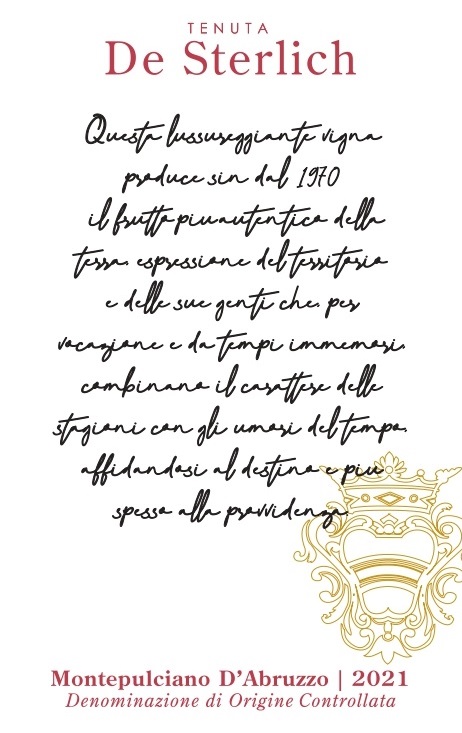 TENUTA
De Sterlich
Questa lussureggiante vigna
produce sin dal 1970
il frutto piu autentico della
terra, espressione del territorio
e delle sue genti che, per
vocazione e da tempi immemori,
combinano il carattere delle
stagioni con gli umori del tempo,
affidandosi al destino e piu
spesso alla provvidenza.
Montepulciano D’Abruzzo | 2021
Denominazione di Origine Controllata